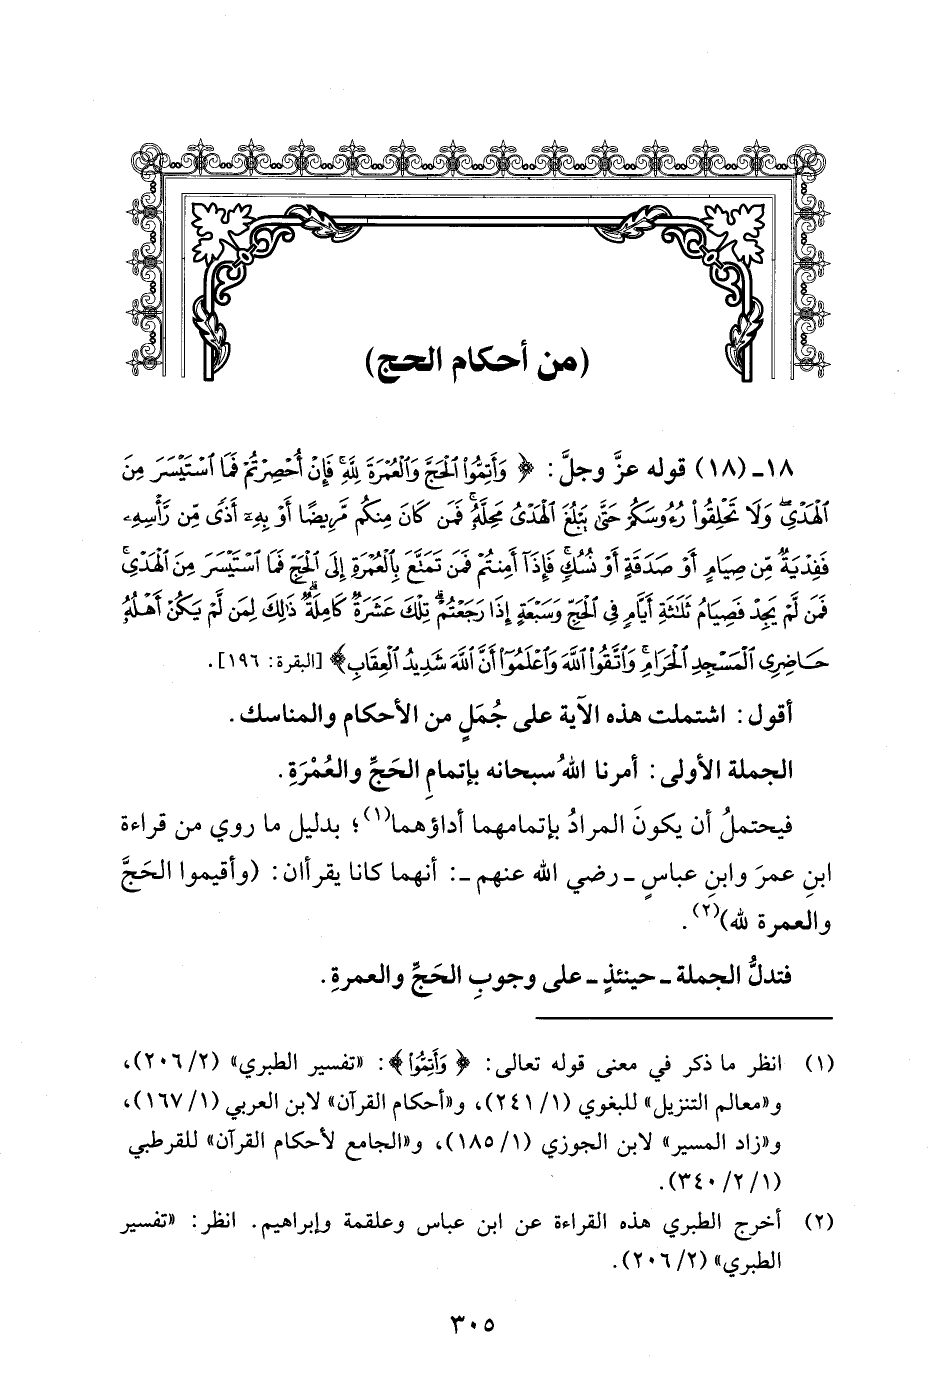 (من أحكام الحج)
١٨ـ (١٨) قوله عزَّ وجلَّ: ﴿وَأَتِمُّوا۟ ٱلْحَجَّ وَٱلْعُمْرَةَ لِلَّهِ ۚ فَإِنْ أُحْصِرْتُمْ فَمَا ٱسْتَيْسَرَ مِنَ
ٱلْهَدْىِ ۖ وَلَا تَحْلِقُوا۟ رُءُوسَكُمْ حَتَّىٰ يَبْلُغَ ٱلْهَدْىُ مَحِلَّهُۥ ۚ فَمَن كَانَ مِنكُم مَّرِيضًا أَوْ بِهِۦٓ أَذًى مِّن رَّأْسِهِۦ
فَفِدْيَةٌ مِّن صِيَامٍ أَوْ صَدَقَةٍ أَوْ نُسُكٍ ۚ فَإِذَآ أَمِنتُمْ فَمَن تَمَتَّعَ بِٱلْعُمْرَةِ إِلَى ٱلْحَجِّ فَمَا ٱسْتَيْسَرَ مِنَ ٱلْهَدْىِ ۚ
فَمَن لَّمْ يَجِدْ فَصِيَامُ ثَلَـٰثَةِ أَيَّامٍ فِى ٱلْحَجِّ وَسَبْعَةٍ إِذَا رَجَعْتُمْ ۗ تِلْكَ عَشَرَةٌ كَامِلَةٌ ۗ ذَٰلِكَ لِمَن لَّمْ يَكُنْ أَهْلُهُۥ
حَاضِرِى ٱلْمَسْجِدِ ٱلْحَرَامِ ۚ وَٱتَّقُوا۟ ٱللَّهَ وَٱعْلَمُوٓا۟ أَنَّ ٱللَّهَ شَدِيدُ ٱلْعِقَابِ﴾ [البقرة: ١٩٦].
أقول: اشتملت هذه الآية على جُمَلٍ من الأحكام والمناسك.
الجملة الأولى: أمرنا اللهُ سبحانه بإتمامِ الحَجِّ والعُمْرَةِ.
فيحتملُ أن يكونَ المرادُ بإتمامهما أداؤهما(١)؛ بدليل ما روي من قراءة
ابنِ عمرَ وابنِ عباسٍ ـ رضي الله عنهم ـ: أنهما كانا يقرأان: (وأقيموا الحَجَّ
والعمرة لله)(٢).
فتدلُّ الجملة ـ حينئذٍ ـ على وجوبِ الحَجِّ والعمرةِ.
(١) انظر ما ذكر في معنى قوله تعالى: ﴿وَأَتِمُّوا۟﴾: «تفسير الطبري» (٢/ ٢٠٦)،
و«معالم التنزيل» للبغوي (١/ ٢٤١)، و«أحكام القرآن» لابن العربي (١/ ١٦٧)،
و«زاد المسير» لابن الجوزي (١/ ١٨٥)، و«الجامع لأحكام القرآن» للقرطبي
(١/ ٢/ ٣٤٠).
(٢) أخرج الطبري هذه القراءة عن ابن عباس وعلقمة وإبراهيم. انظر: «تفسير
الطبري» (٢/ ٢٠٦).
٣٠٥